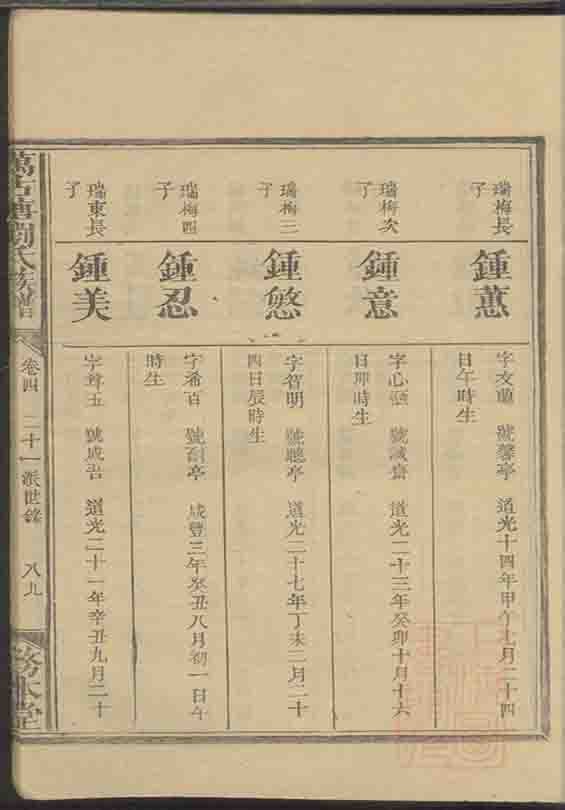 瑞梅長子
鍾蕙
字文蘭 號馨亭 道光十四年甲午七月二十四
日午時生
瑞梅次子
鍾意
字心 號誠齋 道光二十三年癸卯十月十六
日卯時生
瑞梅三子
鍾慜
字智明 號聰亭 道光二十七年丁未二月二十
四日辰時生
瑞梅四子
鍾忍
字希百 號耐亭 咸豐三年癸丑八月初一日午
時生
瑞東長子
鍾美
字尊五 號成吾 道光二十一年辛丑九月二十
萬古塘劉氏族譜
卷四 二十一派世錄 八九
務本堂